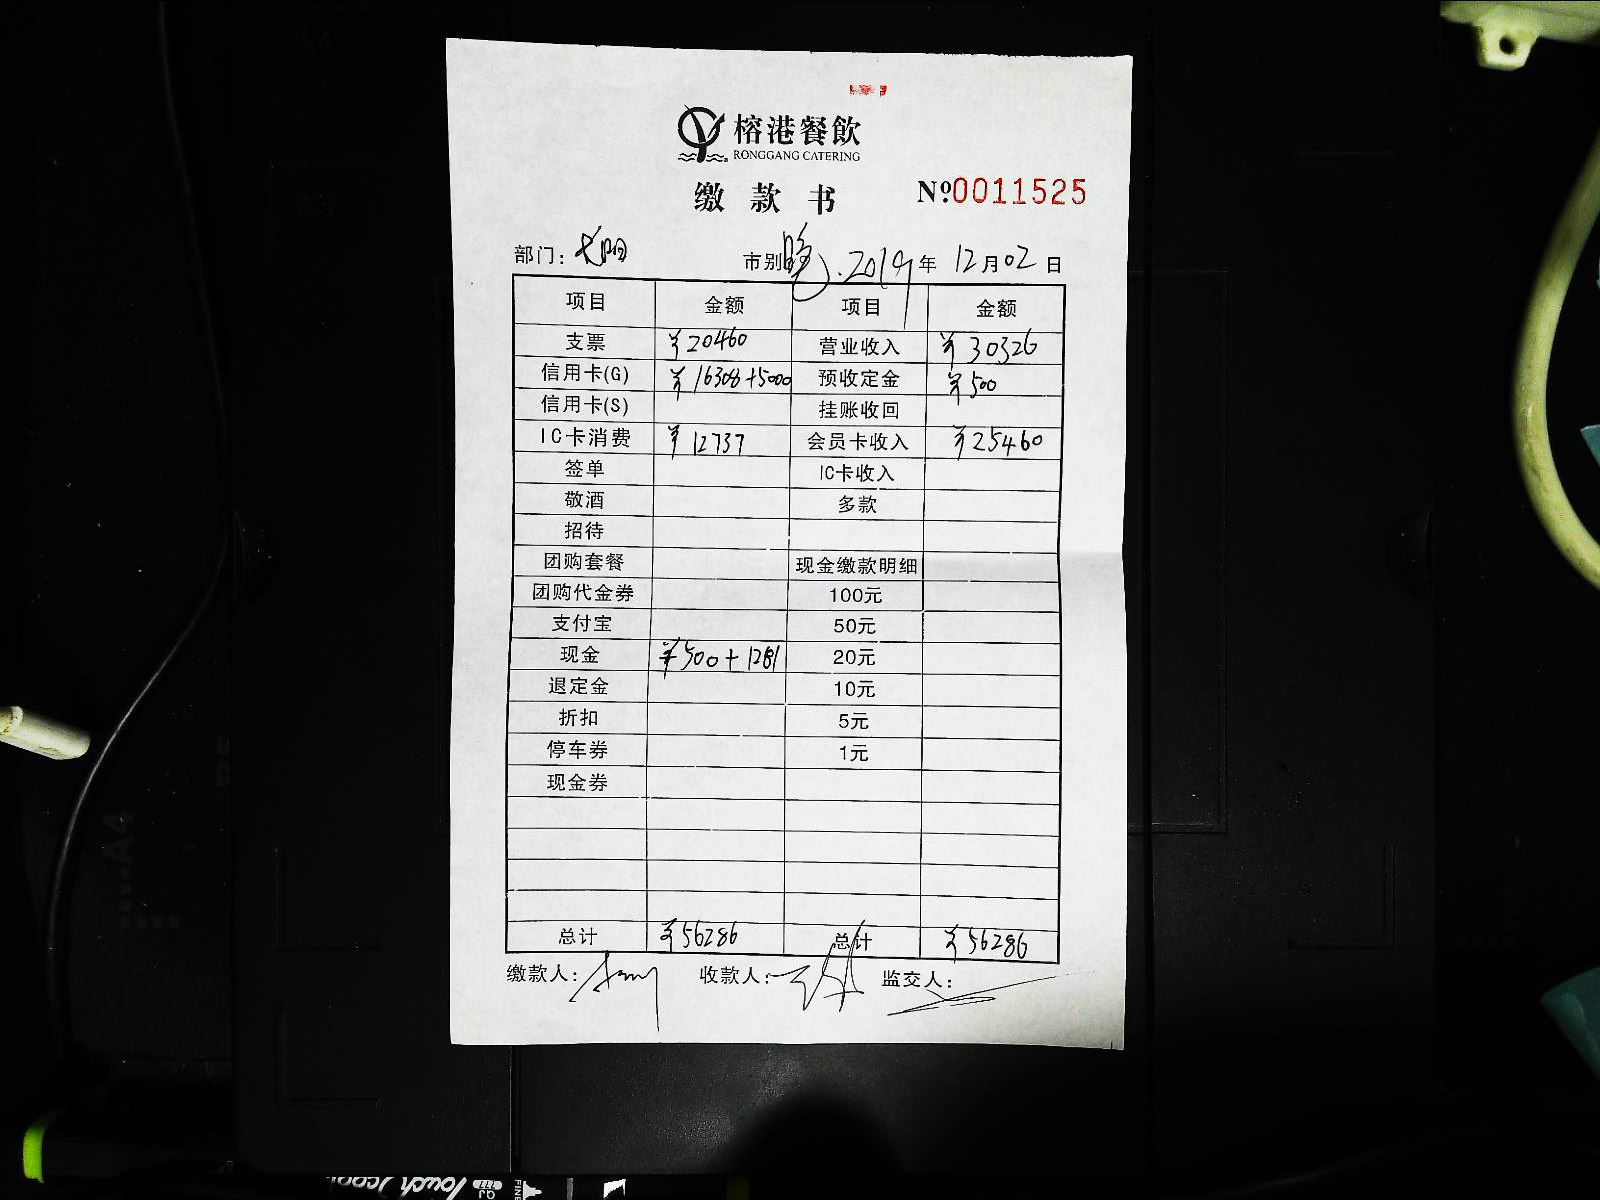 榕港餐飲
RONGGANG CATERING
缴款书 №0011525
部门： 市别 晚 2019年12月02日
项目 金额 项目 金额
支票 ¥20460 营业收入 ¥30326
信用卡(G) ¥16308+5000 预收定金 ¥500
信用卡(S) 挂账收回
IC卡消费 ¥12737 会员卡收入 ¥25460
签单 IC卡收入
敬酒 多款
招待
团购套餐 现金缴款明细
团购代金券 100元
支付宝 50元
现金 ¥500+1281 20元
退定金 10元
折扣 5元
停车券 1元
现金券
总计 ¥56286 总计 ¥56286
缴款人： 收款人： 监交人：
A4